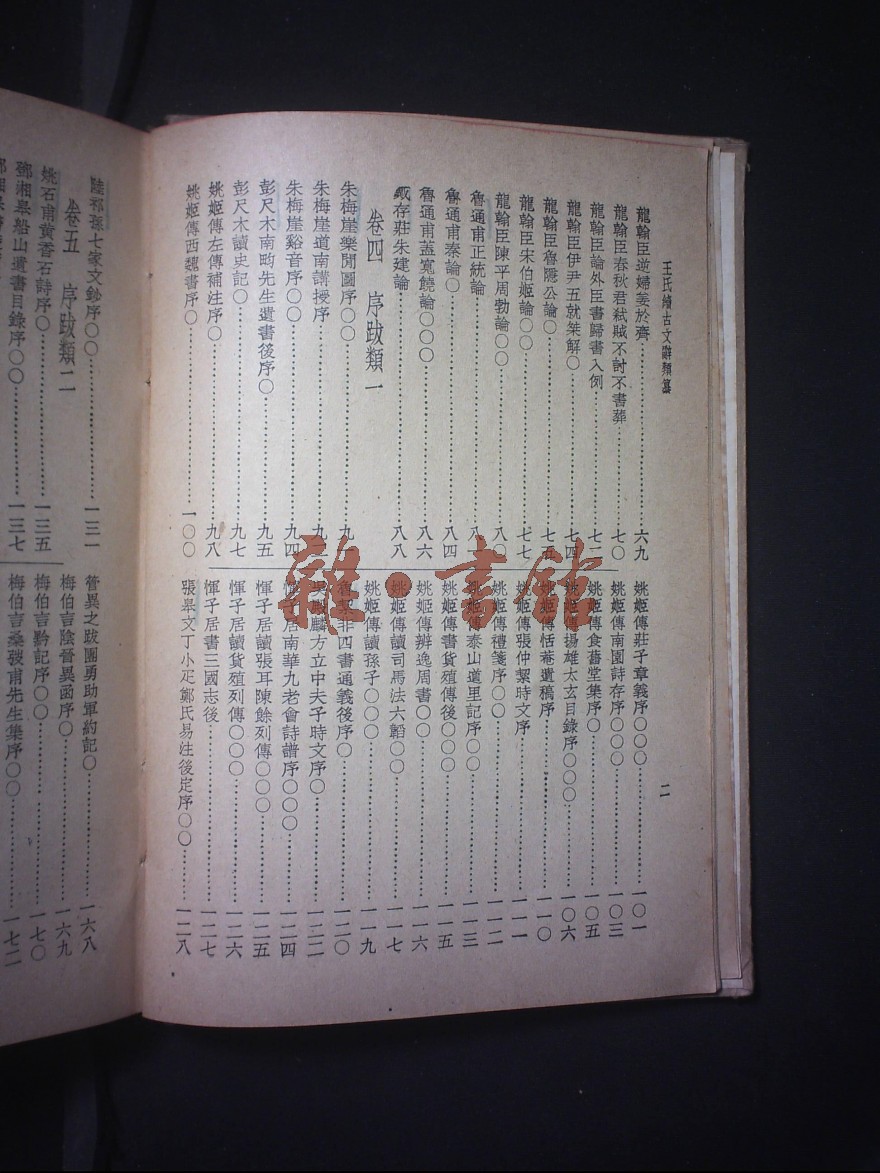 王氏續古文辭類纂
二
龍翰臣逆婦姜於齊⋯⋯六九
龍翰臣春秋君弒賊不討不書葬⋯⋯七〇
龍翰臣論外臣書歸書入例⋯⋯七二
龍翰臣伊尹五就桀解〇⋯⋯七四
龍翰臣魯隱公論〇⋯⋯七五
龍翰臣宋伯姬論〇〇⋯⋯七七
龍翰臣陳平周勃論〇〇⋯⋯八〇
魯通甫正統論⋯⋯八
魯通甫秦論〇⋯⋯八四
魯通甫蓋寬饒論〇〇〇⋯⋯八六
存莊朱建論⋯⋯八八
卷四 序跋類一
朱梅崖樂閒圖序〇〇⋯⋯九
朱梅崖道南講授序⋯⋯九
朱梅崖谿音序〇〇⋯⋯九四
彭尺木南畇先生遺書後序〇⋯⋯九五
彭尺木讀史記〇⋯⋯九七
姚姬傳左傳補注序〇⋯⋯九八
姚姬傳西魏書序〇⋯⋯一〇〇
姚姬傳莊子章義序〇〇⋯⋯一〇一
姚姬傳南園詩存序〇〇〇⋯⋯一〇三
姚姬傳食舊堂集序〇⋯⋯一〇五
姚姬傳揚雄太玄目錄序〇〇〇⋯⋯一〇六
姚姬傳恬菴遺稿序⋯⋯一一〇
姚姬傳張仲絜時文序⋯⋯一一一
姚姬傳禮箋序〇〇⋯⋯一一二
姚姬傳泰山道里記序〇〇⋯⋯一一三
姚姬傳書貨殖傳後〇〇〇⋯⋯一一五
姚姬傳辨逸周書〇〇⋯⋯一一六
姚姬傳讀司馬法六韜〇〇⋯⋯一一七
姚姬傳讀孫子〇〇〇⋯⋯一一九
魯絜非四書通義後序〇⋯⋯一二〇
吳殿麟方立中夫子時文序〇⋯⋯一二二
惲子居南華九老會詩譜序〇〇〇⋯⋯一二四
惲子居讀張耳陳餘列傳〇〇〇⋯⋯一二五
惲子居讀貨殖列傳〇〇〇⋯⋯一二六
惲子居書三國志後⋯⋯一二七
張皋文丁小疋鄭氏易注後定序〇〇⋯⋯一二八
陸祁孫七家文鈔序〇〇⋯⋯一三一
卷五 序跋類二
姚石甫黃香石詩序〇⋯⋯一三五
鄧湘皋船山遺書目錄序〇〇⋯⋯一三七
管異之跋團勇助軍約記〇⋯⋯一六八
梅伯言陰晉異函序〇⋯⋯一六九
梅伯言黔記序〇〇⋯⋯一七〇
梅伯言桑弢甫先生集序〇〇⋯⋯一七二
雜·書館